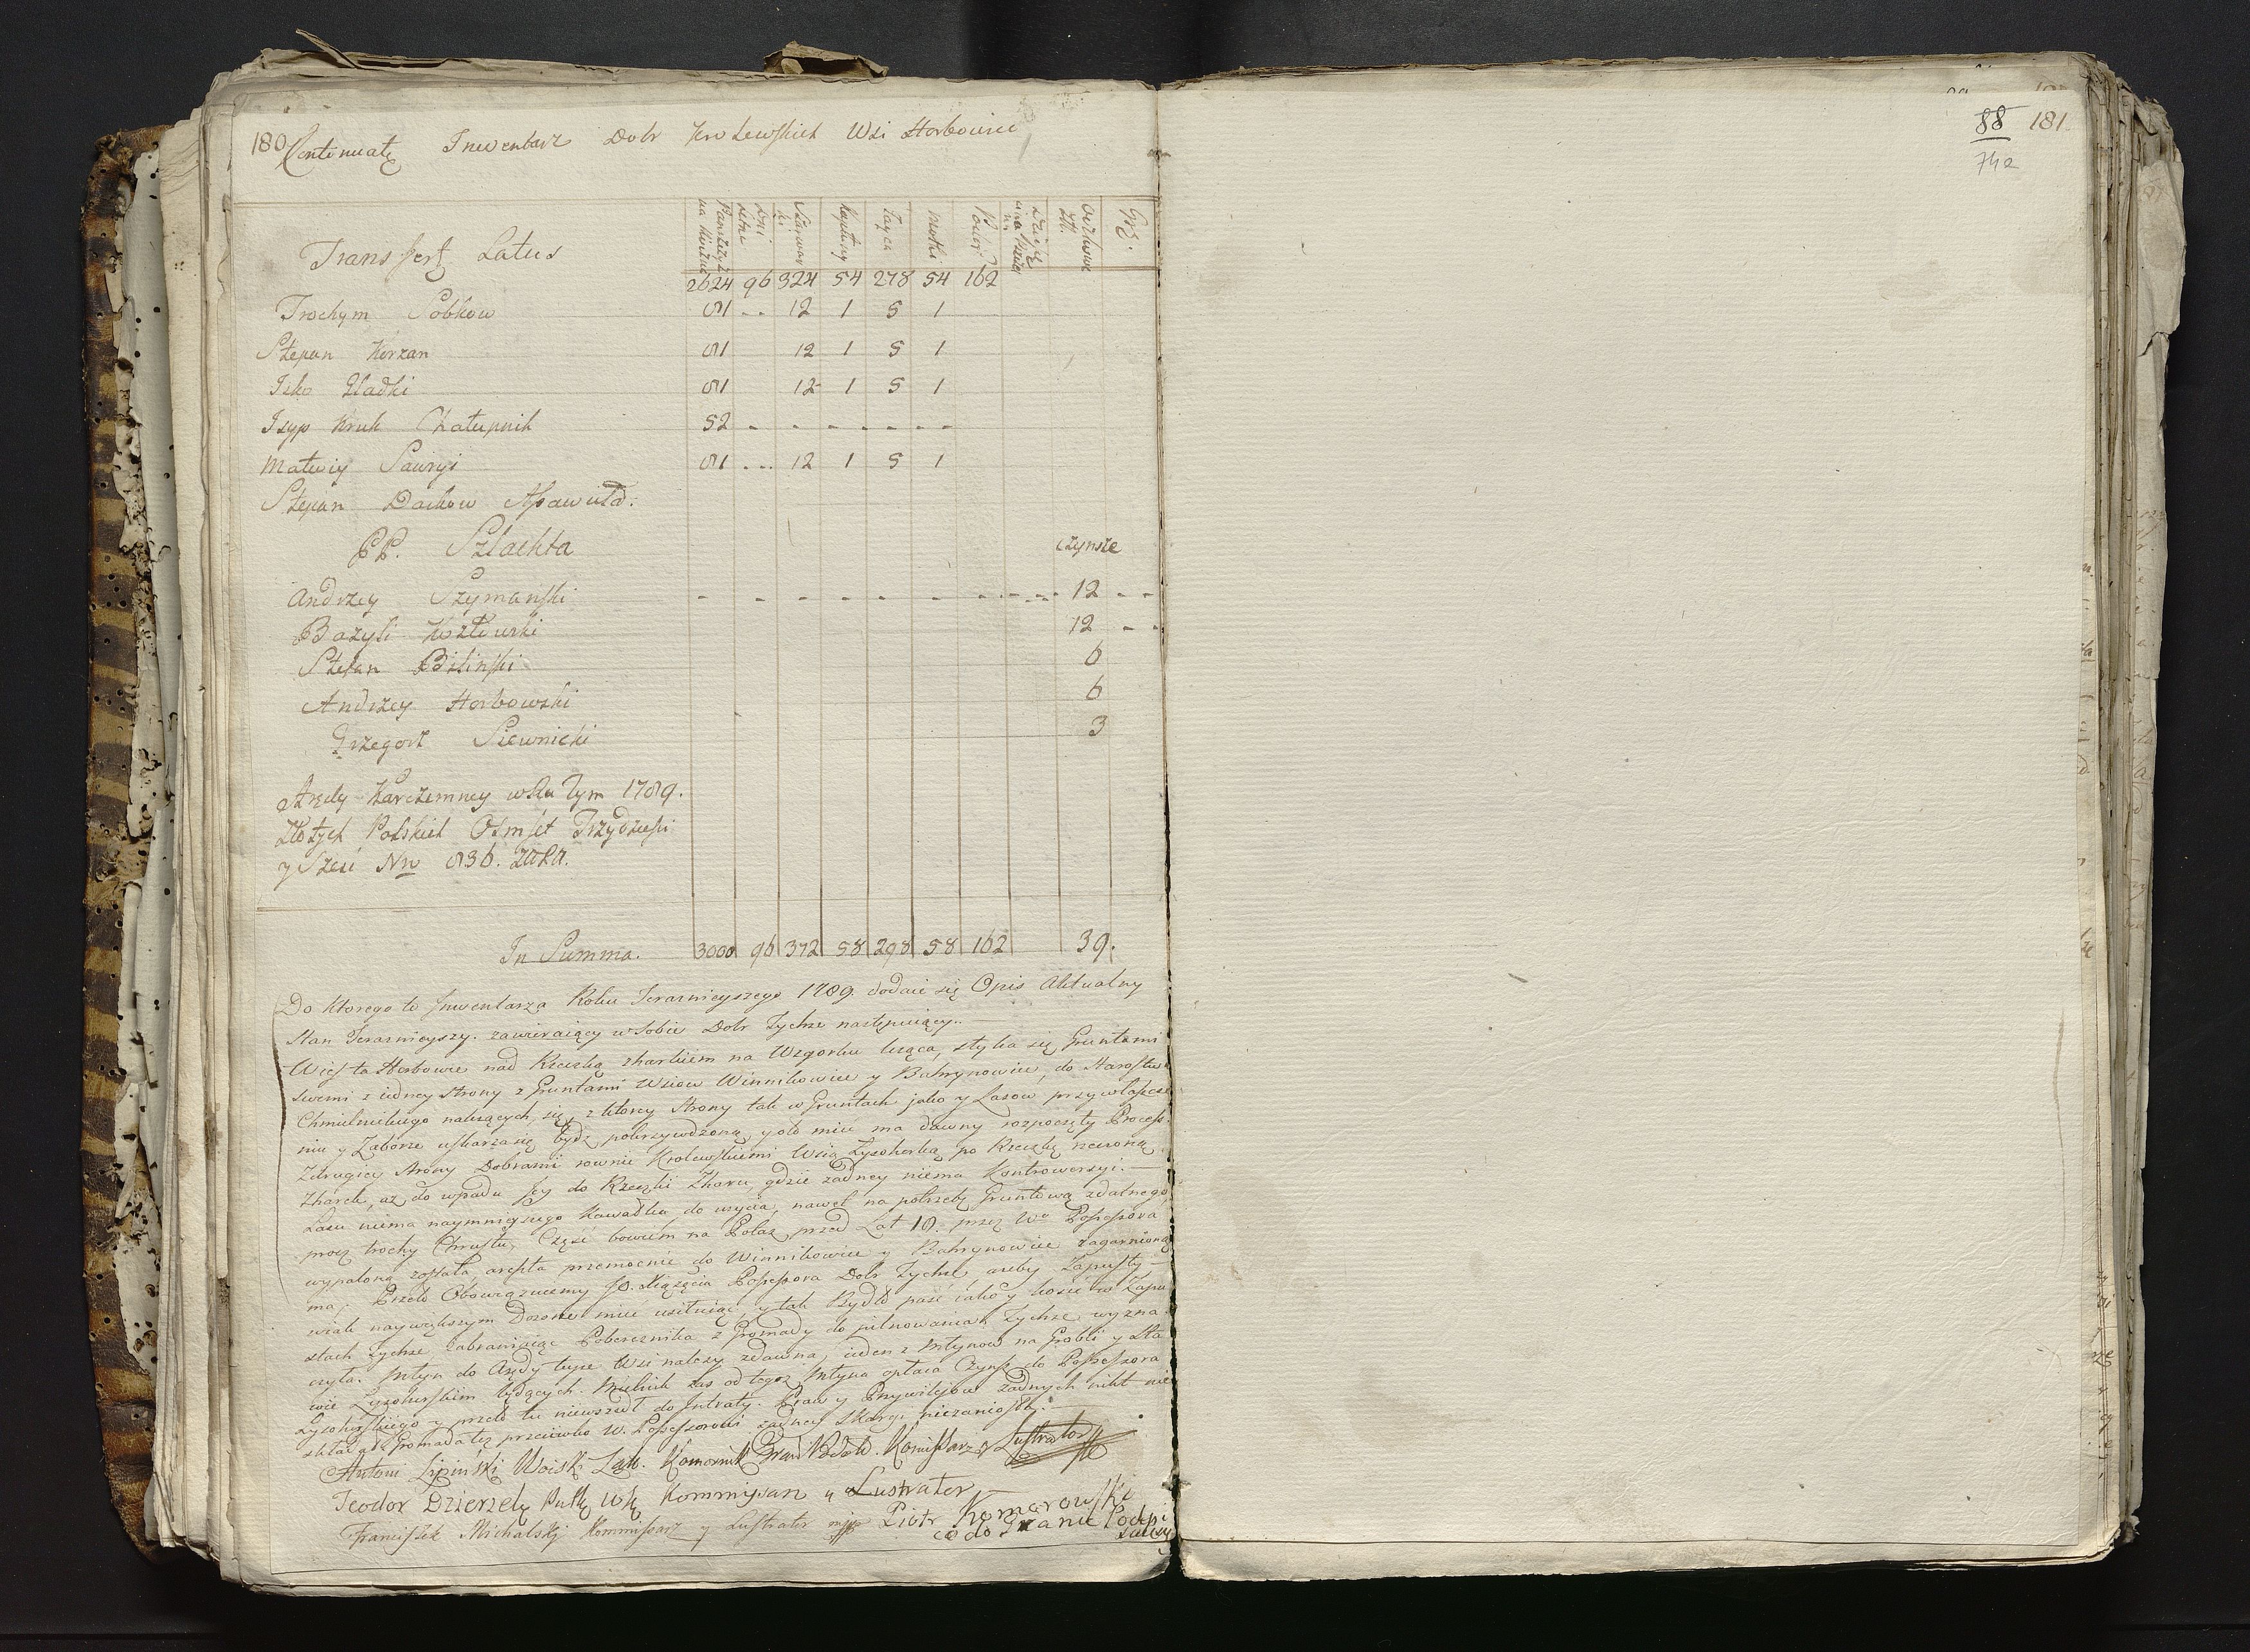 180 Continuatę Inwentarz Dobr Krolewskich Wsi Horbowiec
Panszczyzna na Kożne
Dni letne
Szarwarki
Kapłony
Jayca
Motki
Pobor
Oczkowe Zł.
Gr.
Transfert Latus 2624 96 324 54 278 54 162
Trochym Sobkow 81 - - 12 1 5 1
Stepan Korzan 81 12 1 5 1
Isko Hładki 81 12 1 5 1
Isyp Kruk Chałupnik 52 - - - - - - -
Matwiy Sawryi 81 - - - 12 1 5 1
Stepan Dachow Assawuła.
PP. Szlachta czynsze
Andrzey Szymanski - - - - - - - - - 12 - -
Bazyli Kozłowski 12 - -
Stefan Biliński 6
Andrzey Horbowski 6
Grzegorz Siewnicki 3
Arędy Karczemney w Roku Tym 1789.
Złotych Polskich Osmset Trzydziesci
y Szesc Nro 836.
In Summa. 3000 96 372 58 298 58 162 39.
Do ktorego to Inwentarza Roku Teraznieyszego 1789. dodaie się Opis Aktualny
Stan Teraznieyszy. zawieraiący w sobie Dobr Tychze następuiący.
Wies ta Horbowce nad Rzeczką Zharkiem na Wzgorku leząca, styka się Gruntami
swemi z iedney strony z Gruntami Wsiow Winnikowiec y Bahrynowiec, do Starostwa
Chmielnickiego nalezących, się, z ktorey Strony tak w Gruntach jako y Lasow przywłaszcze
niu y Zaborze uskarza się bydz pokrzywdzoną y oto miec ma dawny rozpoczęty Process.
Zdrugiey strony Dobrami rownie Krolewskiemi Wsią Łysohorką po Rzeczkę rzeczoną
Zharek, az do wpadu Jey do Rzeczki Zharu, gdzie zadney niema Kontrowersyi.
Lasu niema naymnieyszego Kawałka do uzycia, nawet na potrzebę Gruntową zdatnego
procz trochy Chrustu, Częsc bowiem na Polaz przed Lat 10. przez Wo Possessora
wypaloną została, a reszta przemocnie do Winnikowiec y Bahrynowiec zagarnioną
ma, Przeto Obowiązuiemy JO. Xiązęcia Possessora Dobr Tychze, azeby Zapusty
wiak naywiększym Dozorze miec usiłuiąc, y tak Bydło pasc iako y kosic w Zapu
stach Tychze zabraniaiąc Pobereznika z Gromady do pilnowania Tychze wyzna
czyła. Młyn do Arędy teyze Wsi nalezy zdawna, ieden z Młynow na Grobli y Sta
wie Łysohorskim będących. Mielnik zas od tegoz Młyna opłaca Czynsz do Possessora
Łysohorskiego y przeto tu niewszedł do Intraty. Praw y Przywilejow zadnych nikt nie
składał Gromada tez przeciwko W. Possessorowi zadney Skargi niezaniosła.
Antoni Lipinski Woiski Lat. Komornik Gran. Podol. Komissarz y Lustrator
Teodor Dzierzek Kommissarz y Lustrator
Franciszek Michalski Kommissarz y Lustrator mpp Piotr Komorowski
co do Granic Podpi
suię
88 181
742